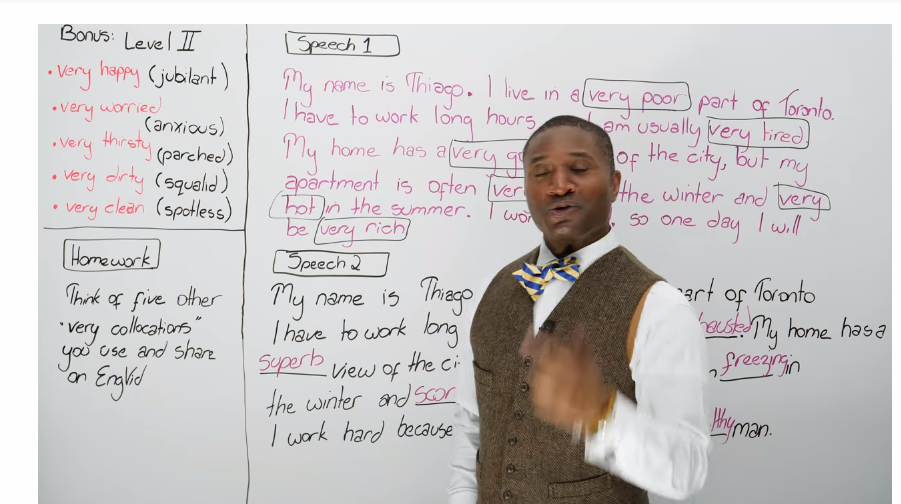 Bonus: Level II
• very happy (jubilant)
• very worried
(anxious)
• very thirsty (parched)
• very dirty (squalid)
• very clean (spotless)
Homework
Think of five other
"very collocations"
you use and share
on EngVid
Speech 1
My name is Thiago. I live in a very poor part of Toronto.
I have to work long hours am usually very tired.
My home has a very of the city, but my
apartment is often the winter and very
hot in the summer. I so one day I will
be very rich
Speech 2
My name is Thiago part of Toronto
I have to work long My home has a
superb view of the freezing in
the winter and
I work hard because man.